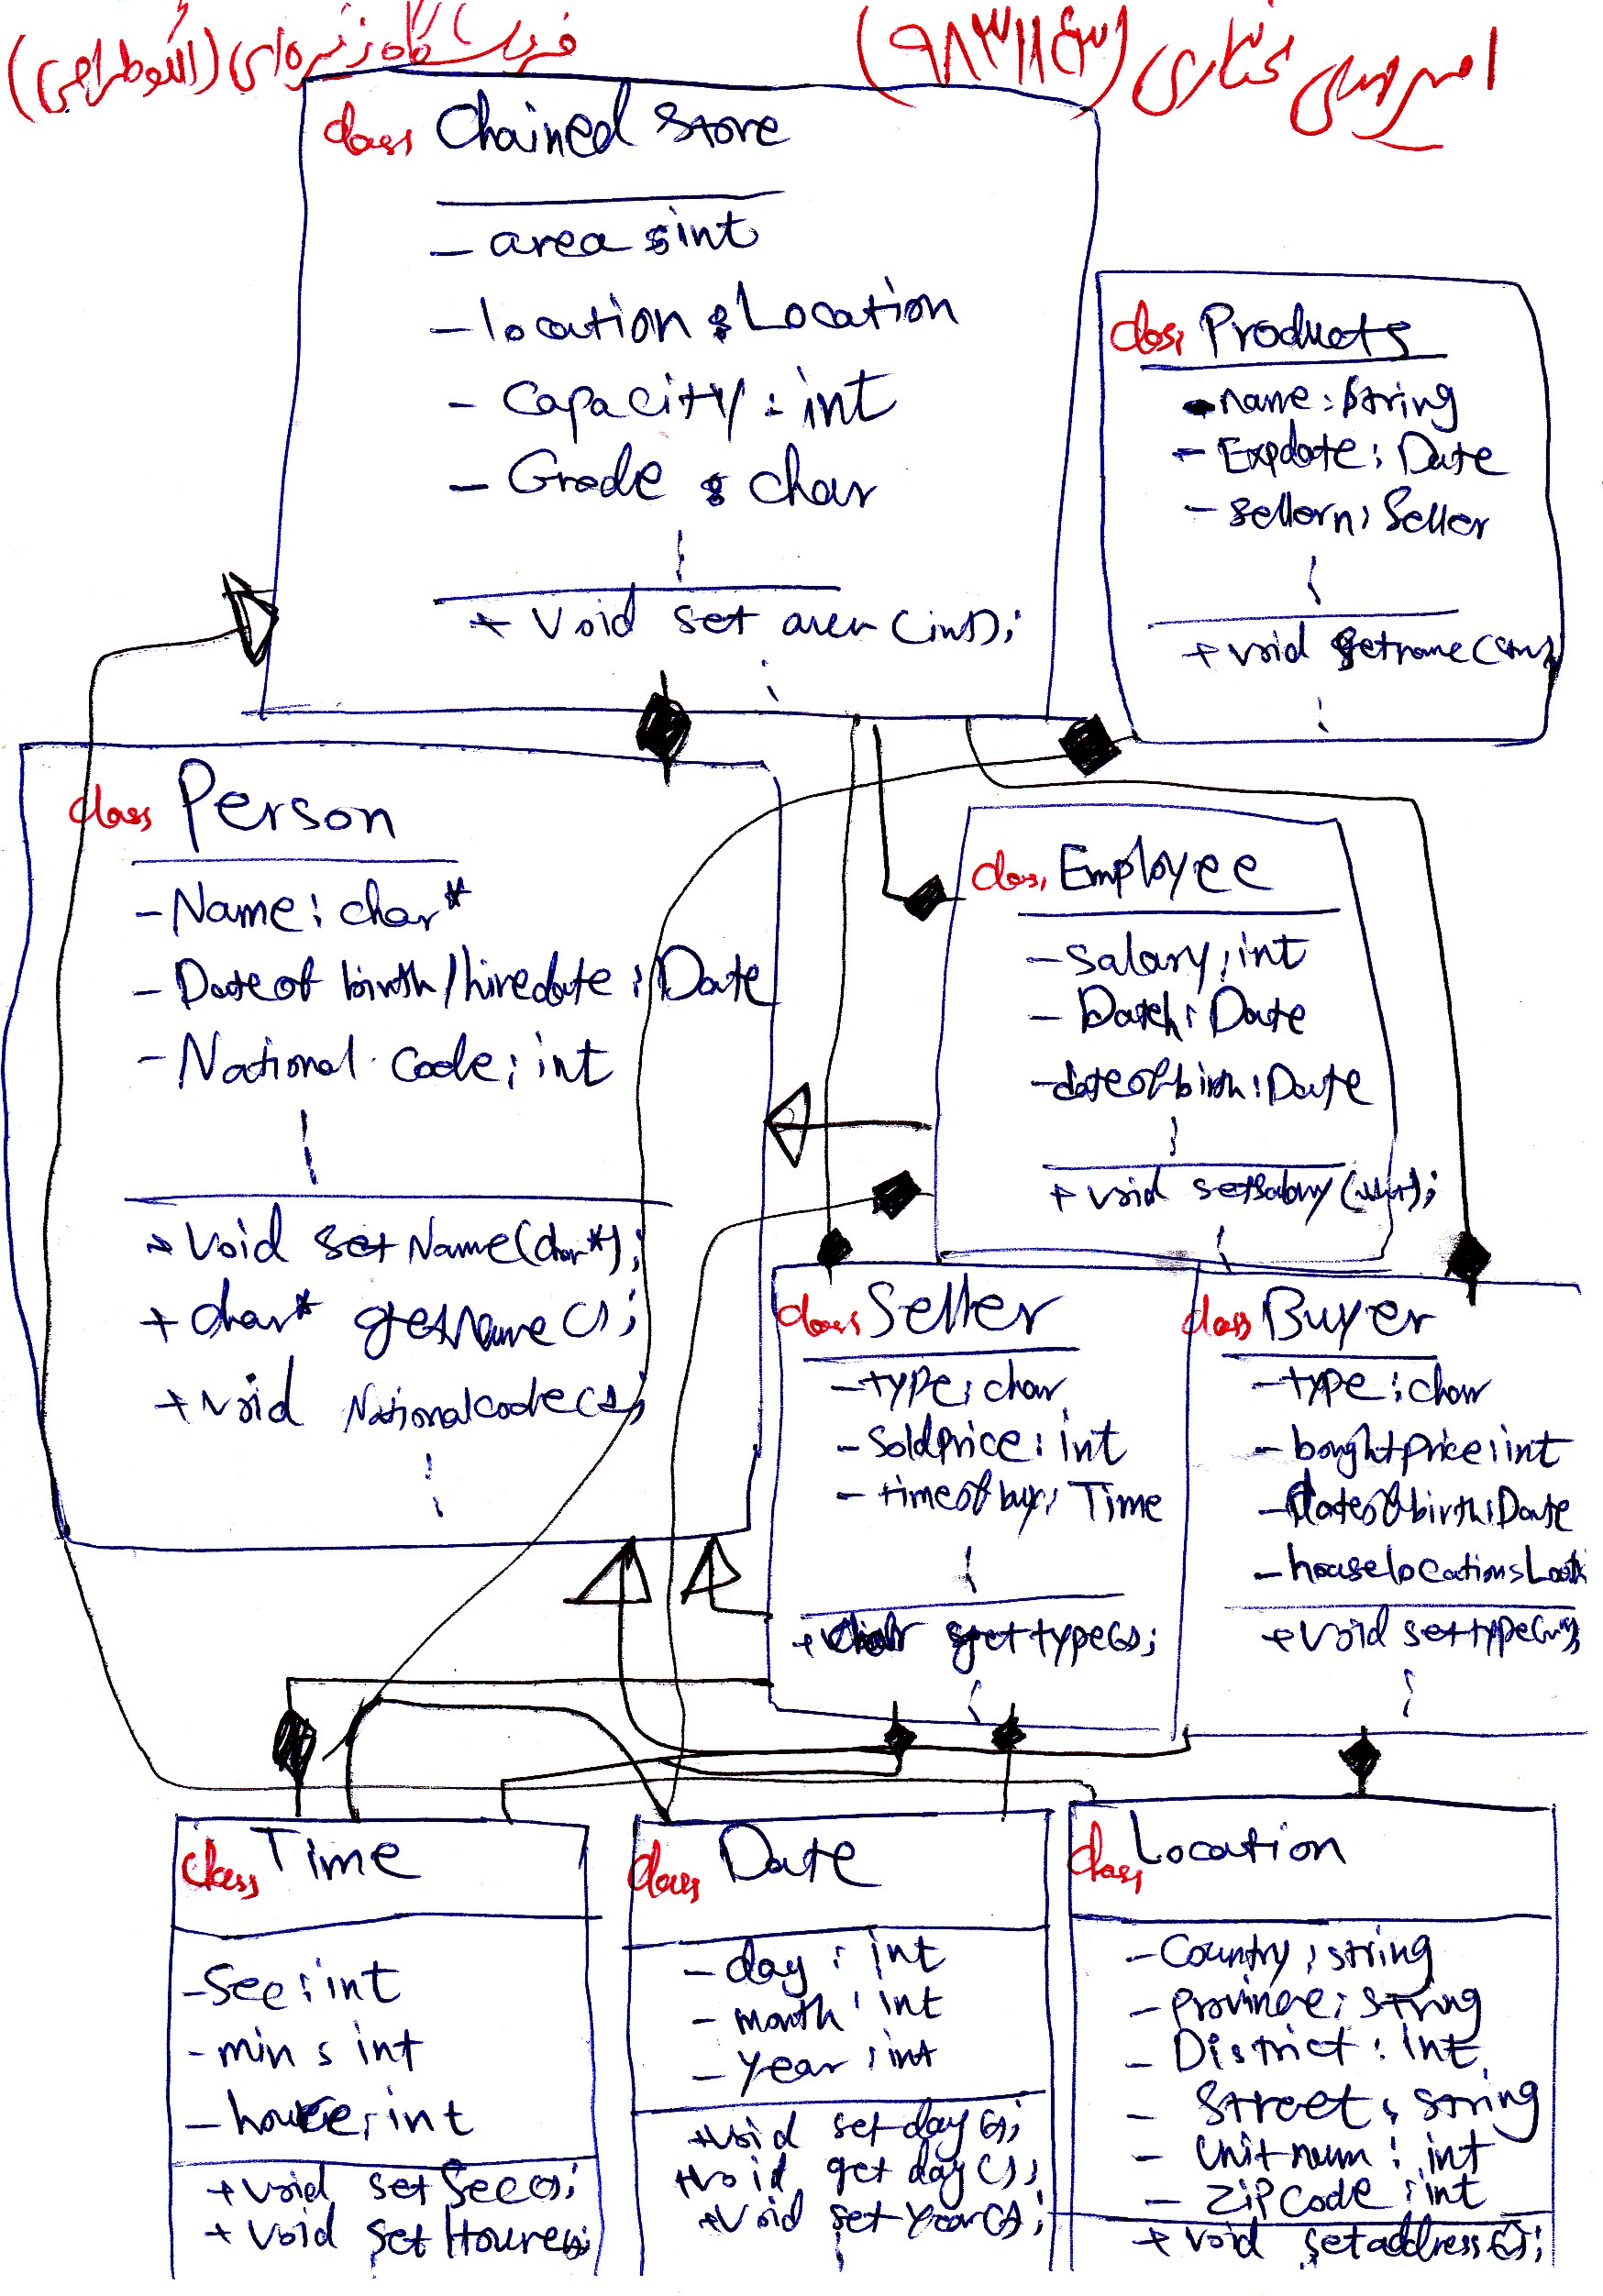 فروشگاه زنجیره‌ای (الگو طراحی)
(۹۸۳۱۱۴۳)
class Chained Store
- area : int
- location : Location
- Capacity : int
- Grade : char
+ Void set area (int);
class Products
- name : string
- Expdate : Date
- sellern : Seller
+ void getname(
class Person
- Name : char*
- Date of birth/hiredate : Date
- National Code : int
+ Void set Name(char*);
+ char* getName();
+ void Nationalcode();
class Employee
- Salary : int
- Dateh : Date
- dateofbirth : Date
+ void setsalary ( );
class Seller
- type : char
- SoldPrice : int
- timeofbuy : Time
+ get type();
class Buyer
- type : char
- boughtprice : int
- Dateofbirth : Date
- houselocation :
+ void settype(
class Time
- Sec : int
- min : int
- houre : int
+ void set Sec();
+ Void set Houre();
class Date
- day : int
- month : int
- Year : int
+ void set day();
+ Void get day();
+ Void set Year();
class Location
- Country : string
- Province : string
- District : int
- Street : string
- Unit num : int
- ZIP Code : int
+ void setaddress();